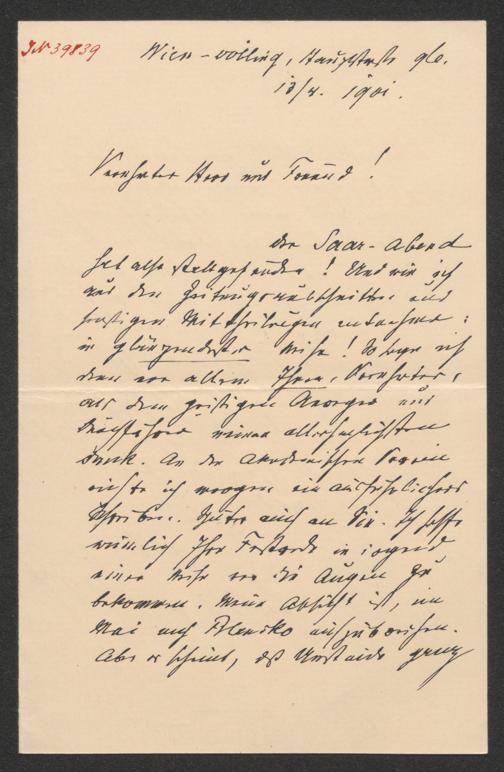 JN 39839
Wien-Döbling, Hauptstraße 96.
13/4. 1901.
Verehrter Herr und Freund!
Der Saar-Abend
hat also stattgefunden! Und wie ich
aus den Zeitungsausschnitten und
sonstigen Mittheilungen entnehme:
in glänzendster Weise! So sage ich
denn vor allem Ihnen, Verehrter,
als dem geistigen Anreger und
meinen allerherzlichsten
Dank. An den Akademischen Verein
richte ich morgen ein ausführlicheres
Schreiben. Heute auch an Sie. Ich hoffe
nämlich Ihre Festrede in irgend
einer Weise vor die Augen zu
bekommen. Meine Absicht ist, im
Mai nach Blansko aufzubrechen.
Aber es scheint, daß Umstände ganz